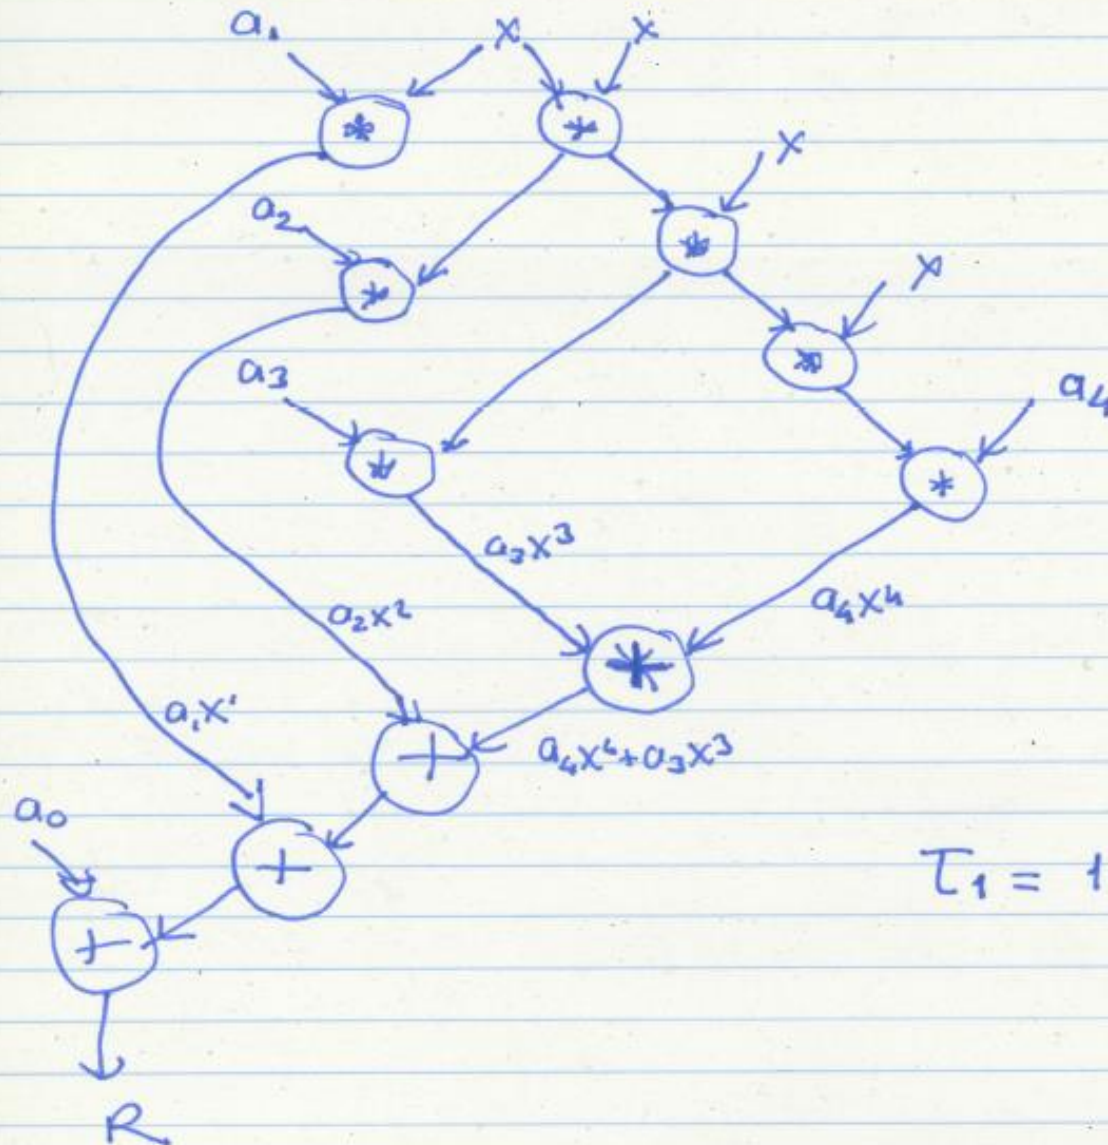 a₁ x x
* *
x
a₂
*
* x
a₃ *
a₄
*
*
a₃x³
a₂x² a₄x⁴
*
a₁x¹
+ a₄x⁴+a₃x³
a₀
+ T₁ = 1
+
R